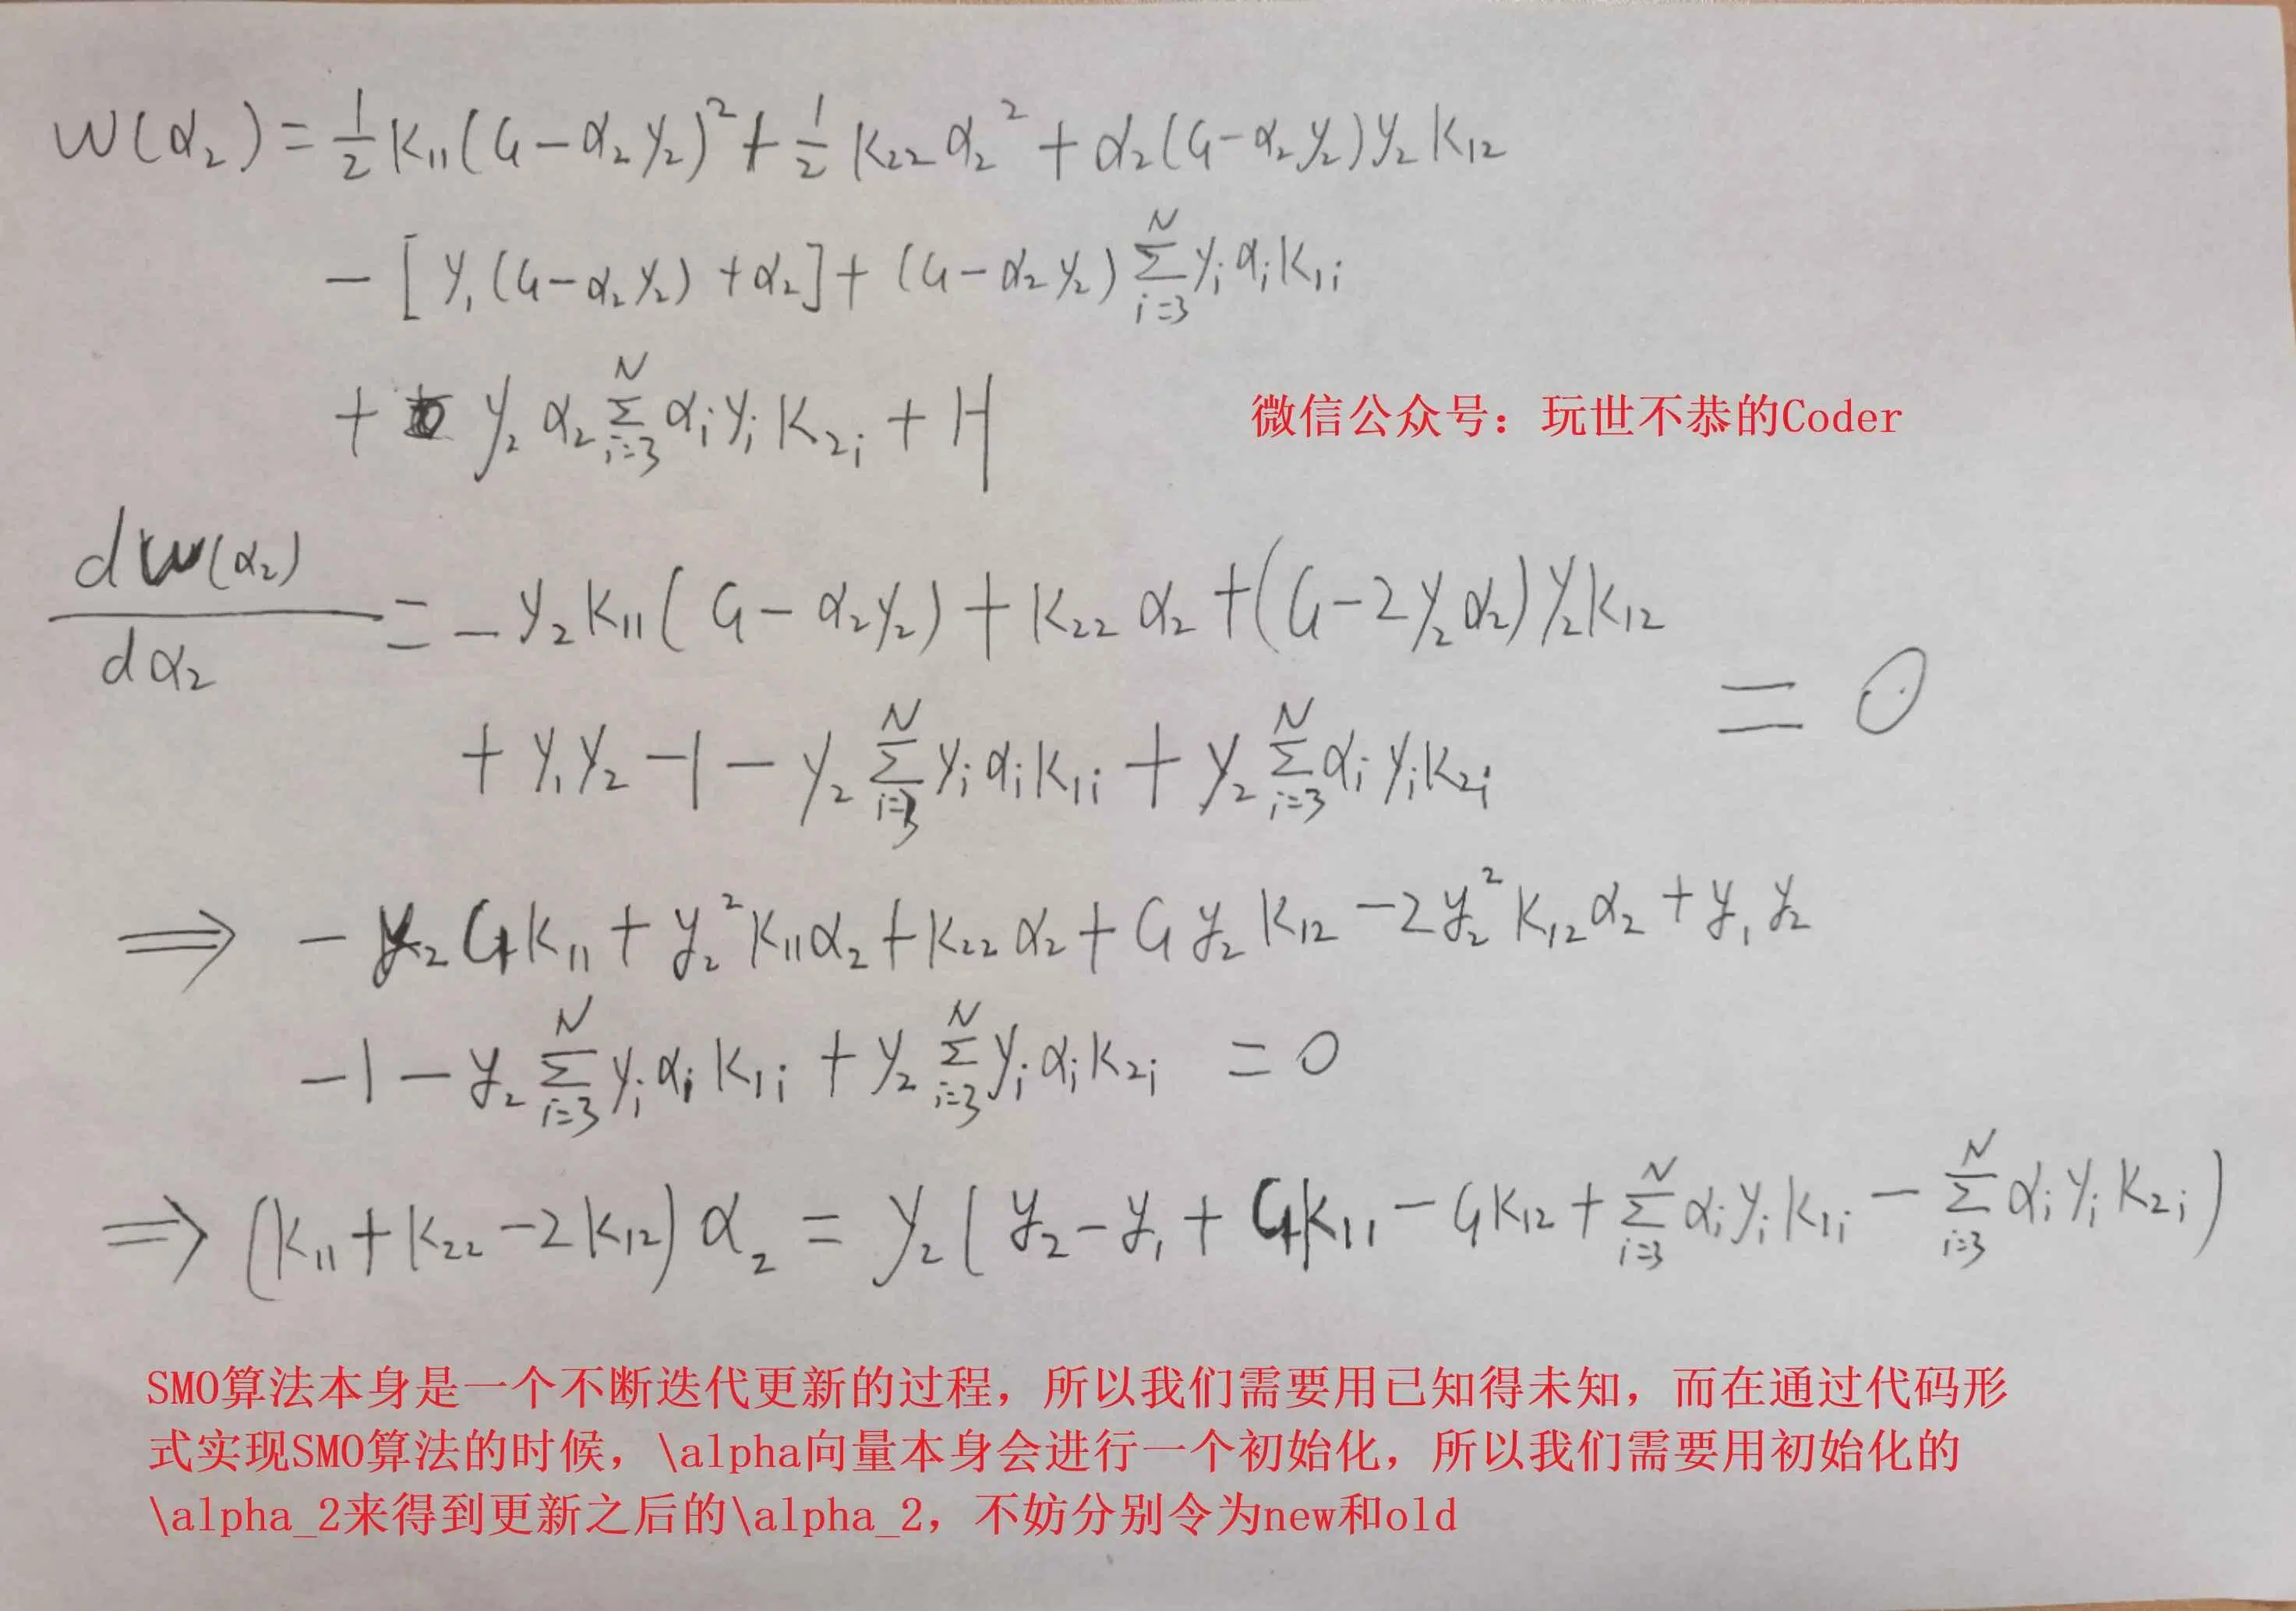 W(α₂) = 1/2 K₁₁(G-α₂y₂)² + 1/2 K₂₂α₂² + α₂(G-α₂y₂)y₂K₁₂
- [y₁(G-α₂y₂) + α₂] + (G-α₂y₂) Σ_{i=3}^{N} yᵢαᵢK₁ᵢ
+ y₂α₂ Σ_{i=3}^{N} αᵢyᵢK₂ᵢ + H
微信公众号：玩世不恭的Coder
dW(α₂)/dα₂ = -y₂K₁₁(G-α₂y₂) + K₂₂α₂ + (G-2y₂α₂)y₂K₁₂
+ y₁y₂ - 1 - y₂ Σ_{i=3}^{N} yᵢαᵢK₁ᵢ + y₂ Σ_{i=3}^{N} αᵢyᵢK₂ᵢ = 0
⟹ -y₂GK₁₁ + y₂²K₁₁α₂ + K₂₂α₂ + Gy₂K₁₂ - 2y₂²K₁₂α₂ + y₁y₂
-1 - y₂ Σ_{i=3}^{N} yᵢαᵢK₁ᵢ + y₂ Σ_{i=3}^{N} yᵢαᵢK₂ᵢ = 0
⟹ (K₁₁+K₂₂-2K₁₂)α₂ = y₂(y₂-y₁+GK₁₁-GK₁₂+ Σ_{i=3}^{N} αᵢyᵢK₁ᵢ - Σ_{i=3}^{N} αᵢyᵢK₂ᵢ)
SMO算法本身是一个不断迭代更新的过程，所以我们需要用已知得未知，而在通过代码形
式实现SMO算法的时候，\alpha向量本身会进行一个初始化，所以我们需要用初始化的
\alpha_2来得到更新之后的\alpha_2，不妨分别令为new和old